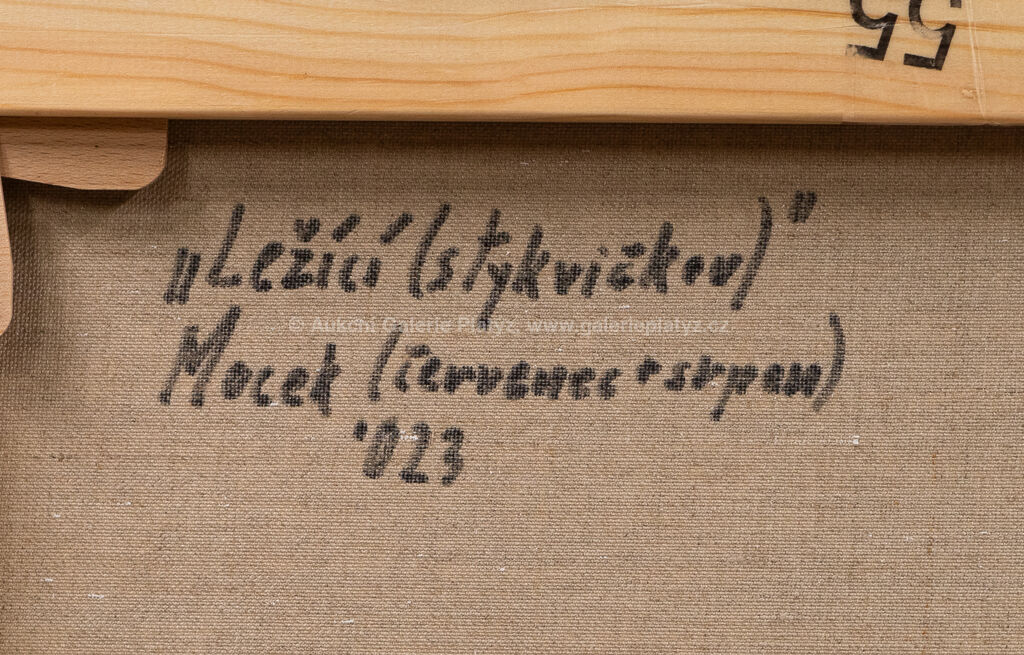 55
„Ležící (stykvičkov)"
© Aukční Galerie Platýz, www.galerieplatyz.cz
Mocek (červenec + srpen)
'023